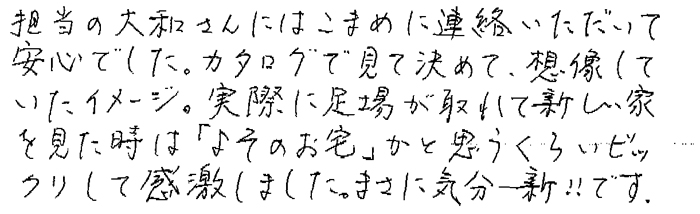 担当の大和さんにはこまめに連絡いただいて
安心でした。カタログで見て決めて、想像して
いたイメージ。実際に足場が取れて新しい家
を見た時は「よそのお宅」かと思うくらいビッ
クリして感激しました。まさに気分一新!!です。